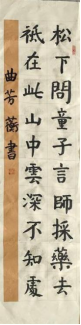 松下問童子言師採藥去
祗在此山中雲深不知處
曲芳蘅書